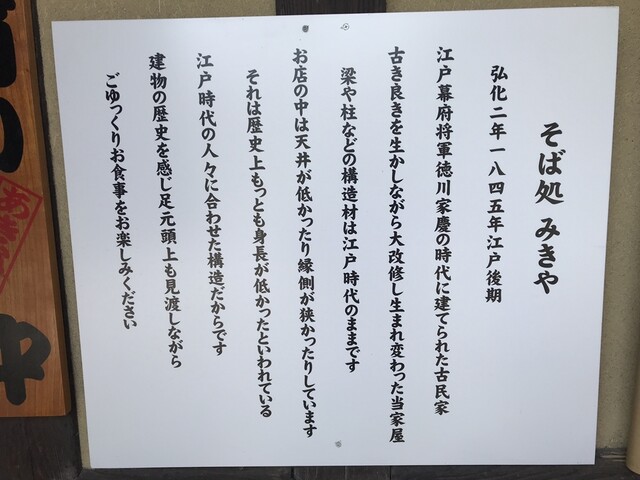 そば処 みきや
弘化二年一八四五年江戸後期
江戸幕府将軍徳川家慶の時代に建てられた古民家
古き良きを生かしながら大改修し生まれ変わった当家屋
梁や柱などの構造材は江戸時代のままです
お店の中は天井が低かったり縁側が狭かったりしています
それは歴史上もっとも身長が低かったといわれている
江戸時代の人々に合わせた構造だからです
建物の歴史を感じ足元頭上も見渡しながら
ごゆっくりお食事をお楽しみください